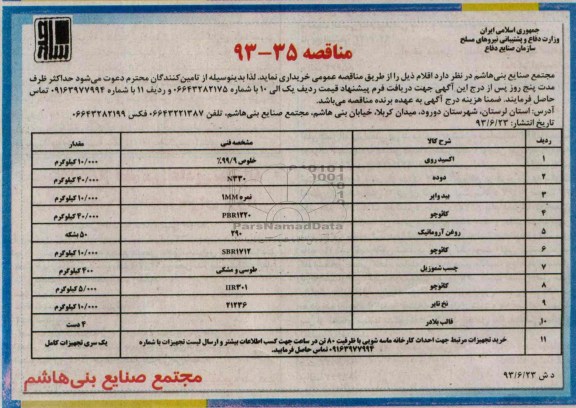 جمهوری اسلامی ایران
وزارت دفاع و پشتیبانی نیروهای مسلح
سازمان صنایع دفاع
مناقصه ۳۵-۹۳
مجتمع صنایع بنی‌هاشم در نظر دارد اقلام ذیل را از طریق مناقصه عمومی خریداری نماید. لذا بدینوسیله از تامین‌کنندگان محترم دعوت می‌شود حداکثر ظرف
مدت پنج روز پس از درج این آگهی جهت دریافت فرم پیشنهاد قیمت ردیف یک الی ۱۰ با شماره ۰۶۶۴۳۲۸۲۱۷۵ و ردیف ۱۱ با شماره ۰۹۱۶۳۹۷۷۹۹۴ تماس
حاصل فرمایند. ضمنا هزینه درج آگهی به عهده برنده مناقصه می‌باشد.
آدرس: استان لرستان، شهرستان دورود، میدان کربلا، خیابان بنی هاشم، مجتمع صنایع بنی‌هاشم، تلفن ۰۶۶۴۳۲۲۱۳۸۷ فکس ۰۶۶۴۳۲۸۲۱۹۹
تاریخ انتشار: ۹۳/۶/۲۳
ردیف شرح کالا مشخصه فنی مقدار
۱ اکسید روی خلوص ۹۹/۹٪ ۱۰/۰۰۰ کیلوگرم
۲ دوده N۳۳۰ ۴۰/۰۰۰ کیلوگرم
۳ بید وایر نمره ۱MM ۱۰/۰۰۰ کیلوگرم
۴ کائوچو PBR۱۲۲۰ ۴۰/۰۰۰ کیلوگرم
۵ روغن آروماتیک ۲۹۰ ۵۰ بشکه
۶ کائوچو SBR۱۷۱۲ ۱۰/۰۰۰ کیلوگرم
۷ چسب شموزیل طوسی و مشکی ۴۰۰ کیلوگرم
۸ کائوچو IIR۳۰۱ ۵/۰۰۰ کیلوگرم
۹ نخ تایر ۲۱۲۳۶ ۱۰/۰۰۰ کیلوگرم
۱۰ قالب بلادر ۴ دست
۱۱ خرید تجهیزات مرتبط جهت احداث کارخانه ماسه شویی با ظرفیت ۸۰ تن در ساعت جهت کسب اطلاعات بیشتر و ارسال لیست تجهیزات با شماره یک سری تجهیزات کامل
۰۹۱۶۳۹۷۷۹۹۴ تماس حاصل فرمایید.
مجتمع صنایع بنی‌هاشم
د ش ۹۳/۶/۲۳
ParsNamadData